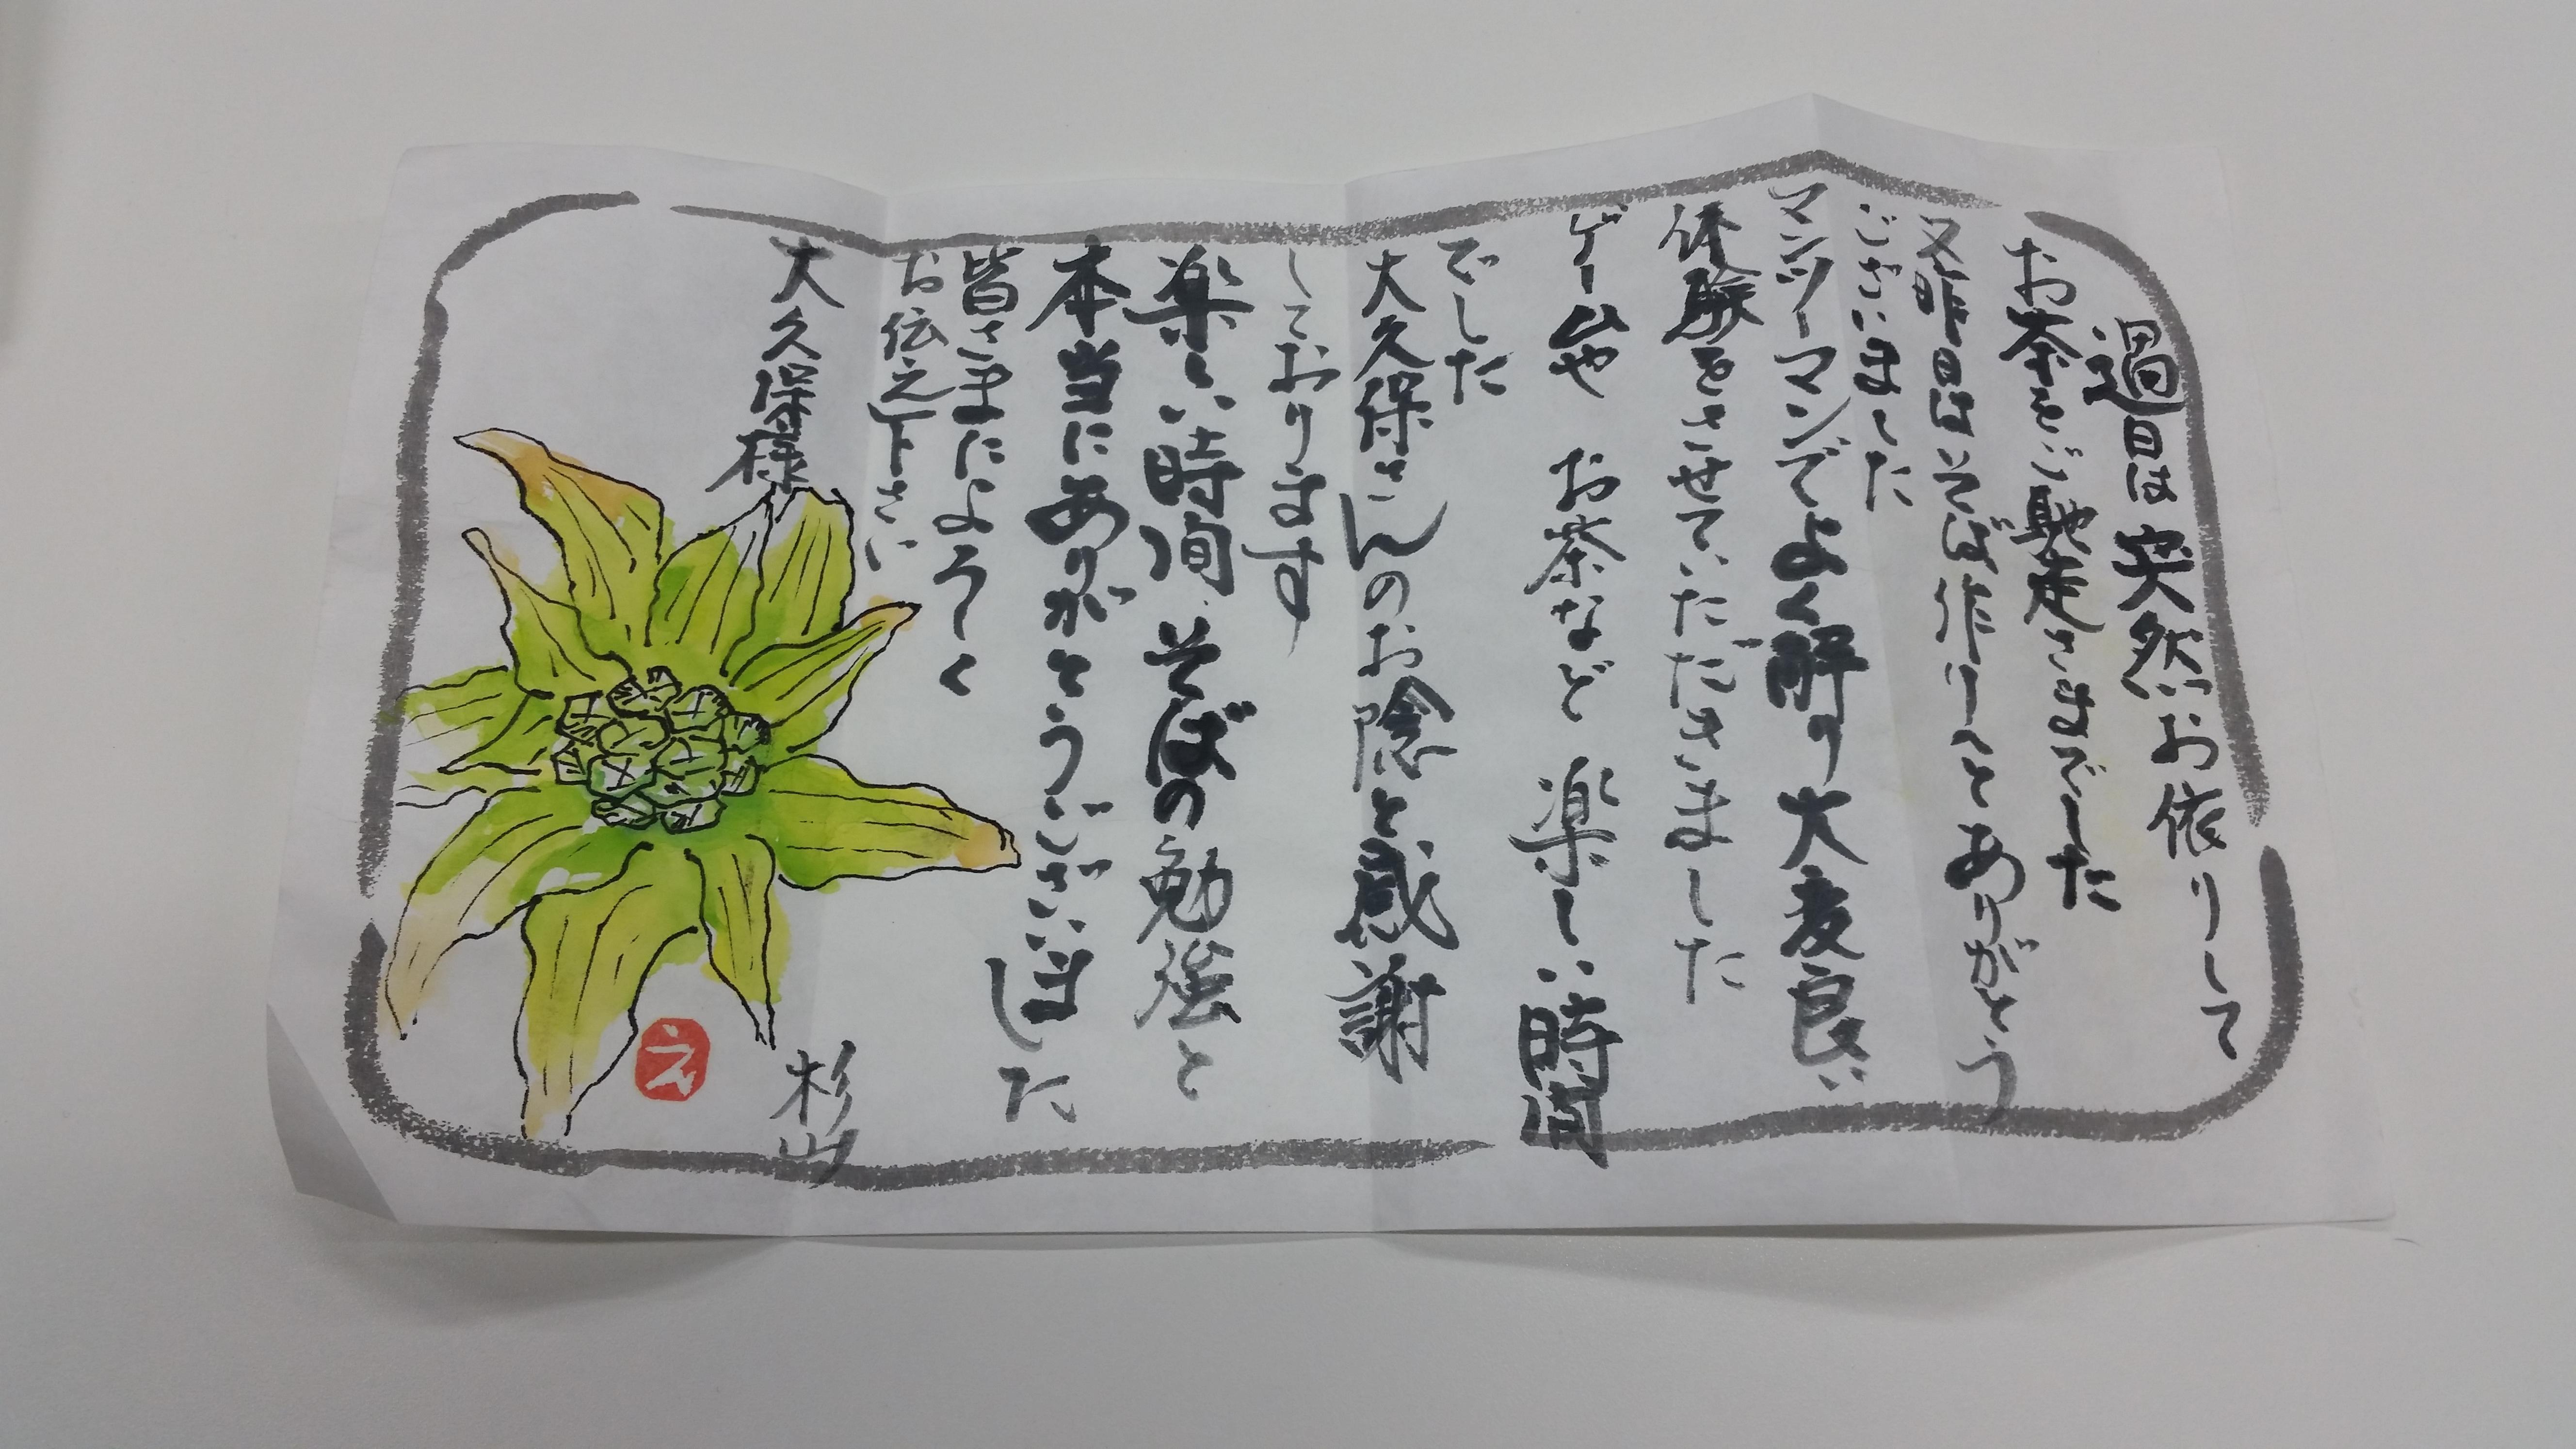 過日は突然お依りして
お茶をご馳走さまでした
又昨日はそば作りことありがとう
ございました
マンツーマンでよく解り大変良い
体験をさせていただきました
ゲームや お茶など 楽しい時間
でした
大久保さんのお陰と感謝
しております
楽しい時間 そばの勉強と
本当にありがとうございました
皆さまによろしく
お伝え下さい
大久保様
杉山
え